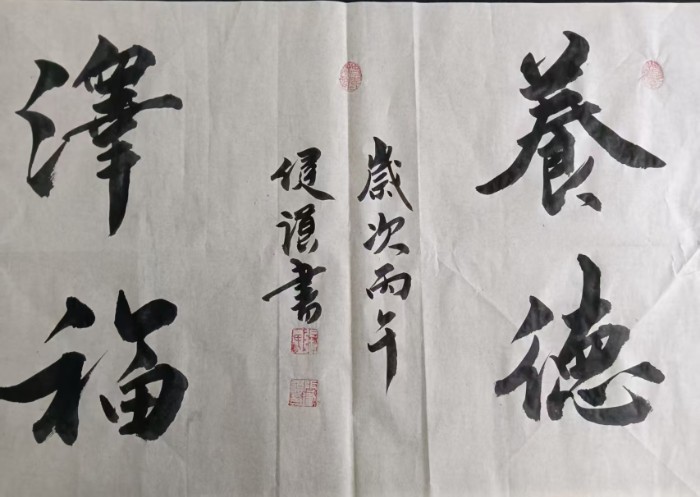 養德
歲次丙午
書
澤福